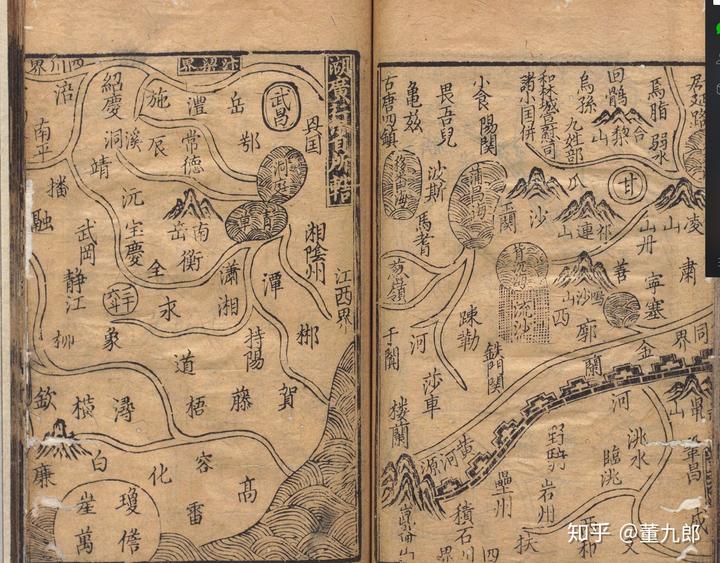 湖廣
居延路
焉脂
弱水
回鶻
合黎山
烏孫
九姓部
和林城宣慰司
諸小国併
小食
陽関
畏吾兒
龜茲
古唐四鎮
波斯
蒲昌海
焉耆
玉関
沙
瓜
祁連山
甘
山丹
凌山
肅
鳴沙山
流沙
善
寧塞
西
廓
金
蘭
界
葱嶺
于闐
河
疎勒
鉄門関
莎車
樓蘭
黄河源
崑崙山
積石州
疊州
岩州
野馬
臨洮
洮水
河
鞏昌
四
界
扶
文
和
成
汴梁界
四川界
武昌
岳
澧
施
紹慶
涪
南平
鄂
常德
辰
溪洞
洞庭
青草
靖
沅
播
融
宝慶
武岡
南岳
衡
湘陰州
江西界
潭
瀟湘
全
静江
永
象
柳
郴
持陽
道
賀
藤
梧
潯
横
欽
廉
白
化
容
高
雷
瓊
儋
崖
萬
知乎 @董九郎